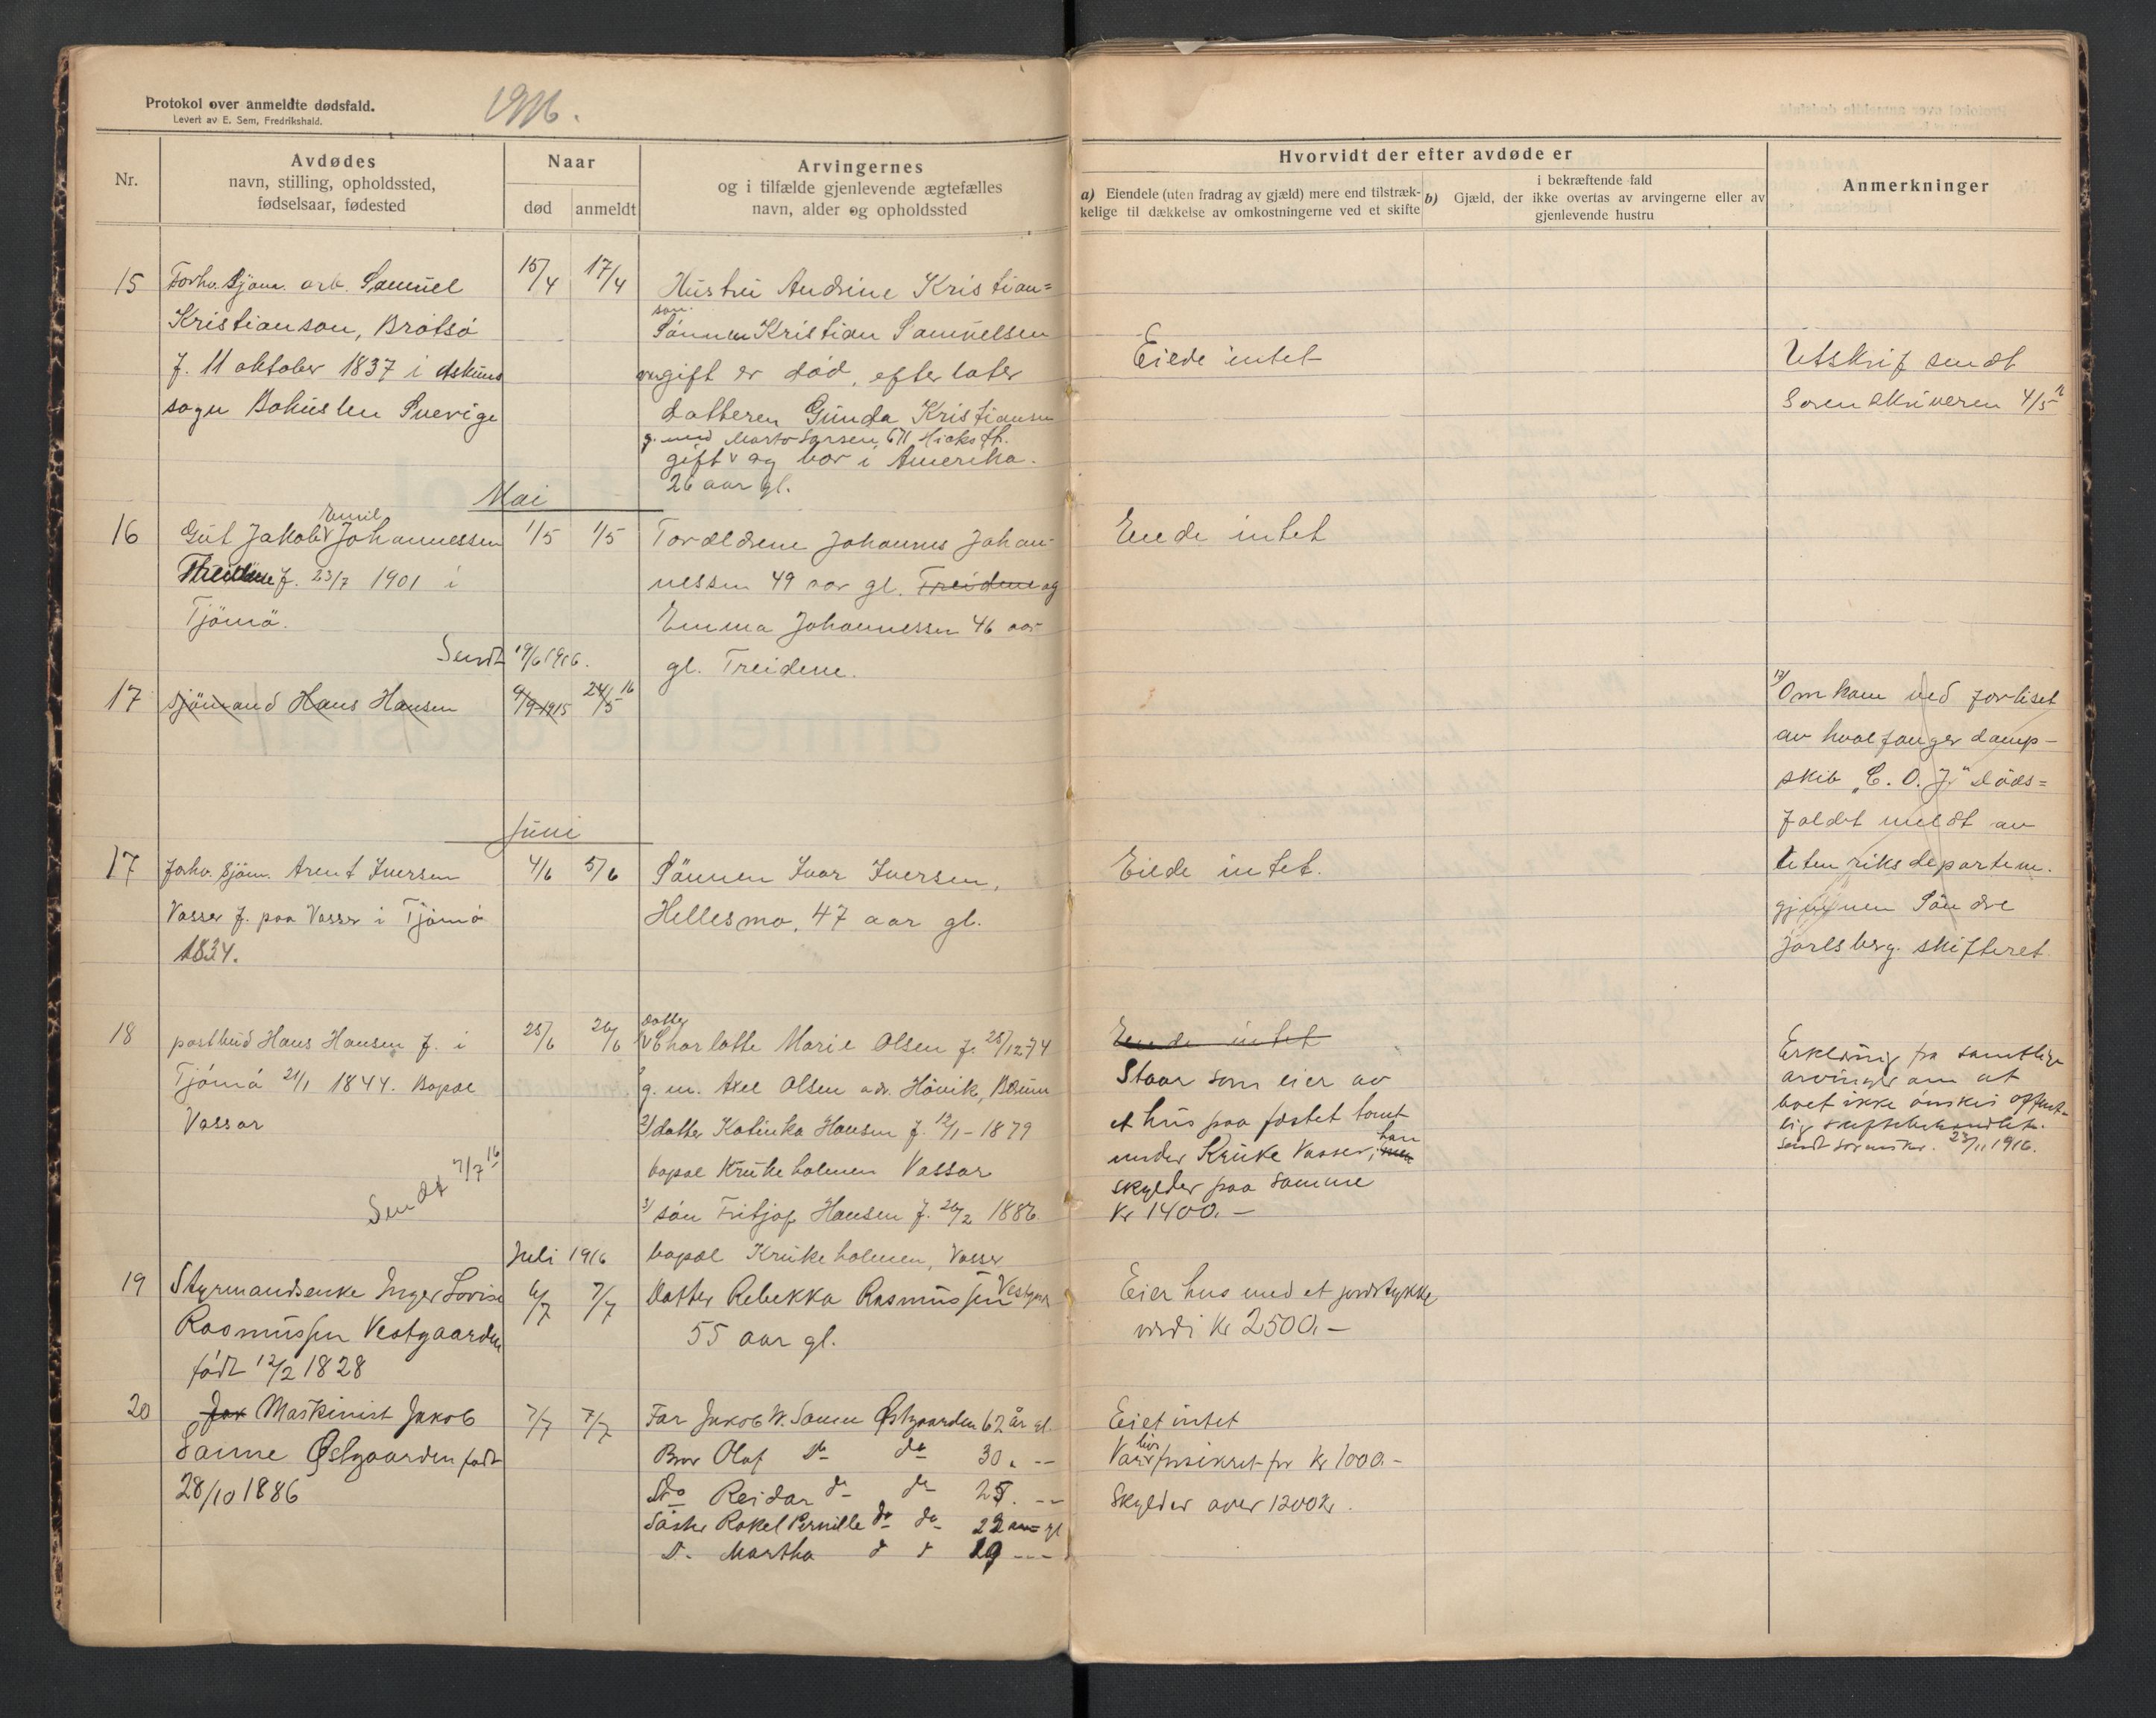 Protokol over anmeldte dødsfald.
Levert av E. Sem, Fredrikshald.
1916.
Nr.
Avdødes
navn, stilling, opholdssted,
fødselsaar, fødested
Naar
død
anmeldt
Arvingernes
og i tilfælde gjenlevende ægtefælles
navn, alder og opholdssted
Hvorvidt der efter avdøde er
a) Eiendele (uten fradrag av gjæld) mere end tilstræk-
kelige til dækkelse av omkostningerne ved et skifte
i bekræftende fald
b) Gjæld, der ikke overtas av arvingerne eller av
gjenlevende hustru
Anmerkninger
15
Forhv. Sjöm. arb. Samuel
Kristianson, Brötsö
f. 11 oktober 1837 i Askums
sogn Bohuslen Sverige
15/4
17/4
Hustru Andrine Kristian=
son.
Sönnen Kristian Samuelsen
ugift er död, efterlater
datteren Gunda Kristiansen
g. med Larsen, 671 Hicks
gift og bor i Amerika.
26 aar gl.
Eiede intet
Utskrif sendt
Sorenskriveren 4/5
Mai
16
Emil
Gut Jakob Johannessen
f. 23/7 1901 i
Tjömö.
Sendt 19/6 1916.
1/5
1/5
Forældrene Johannes Johan-
nessen 49 aar gl. Treidene og
Emma Johannessen 46 aar
gl. Treidene.
Eiede intet
17
Sjömand Hans Hansen
9/9-1915
24/5 16
17/ Omkom ved forliset
av hvalfanger damp-
skib „C. O. J." döds=
faldet meldt av
utenriksdepartem.
gjennem Söndre
Jarlsberg. skifteret
Juni
17
forhv. sjöm. Arent Iversen
Vasser f. paa Vasser i Tjömö
1834.
4/6
5/6
Sönnen Ivar Iversen,
Hellesmo, 47 aar gl.
Eiede intet.
18
postbud Hans Hansen f. i
Tjömö 21/1 1844. Bopæl
Vassar
Sendt 7/7 16
25/6
26/6
datter
1/ Charlotte Marie Olsen f. 25/12 74
g. m. Axel Olsen adr. Hövik, Bærum
2/ datter Katinka Hansen f. 12/1 - 1879
bopæl Krukeholmen Vassar
3/ sön Fritjof Hansen f. 26/2 1886
bopæl Krukeholmen, Vasser
Eiede intet
Staar som eier av
et hus paa festet tomt
under Kruke Vasser, men
han
skylder paa samme
Kr 1400.-
Erklæring fra samtlige
arvinger om at
boet ikke önskes offent-
lig skiftebehandlet.
sendt sorenskr. 23/11 1916.
Juli 1916
19
Styrmandsenke Inger Lovise
Rasmussen Vestgaarden
födt 12/2 1828
6/7
7/7
Datter Rebekka Rasmussen Vestgrd
55 aar gl.
Eier hus med et jordstykke
verdi Kr 2500.-
20
Jak Maskinist Jakob
Sanne Østgaarden födt
28/10 1886
7/7
7/7
Far Jakob W. Sanne Østgaarden 62 år gl.
Bror Olaf do do 30. --
Do Reidar do do 25. --
Söster Rakel Pernille do do 22 aar gl
D. Martha d d 19 ---
Eiet intet
Var livsforsikret for Kr 1000.-
Skylder over 1200 kr.